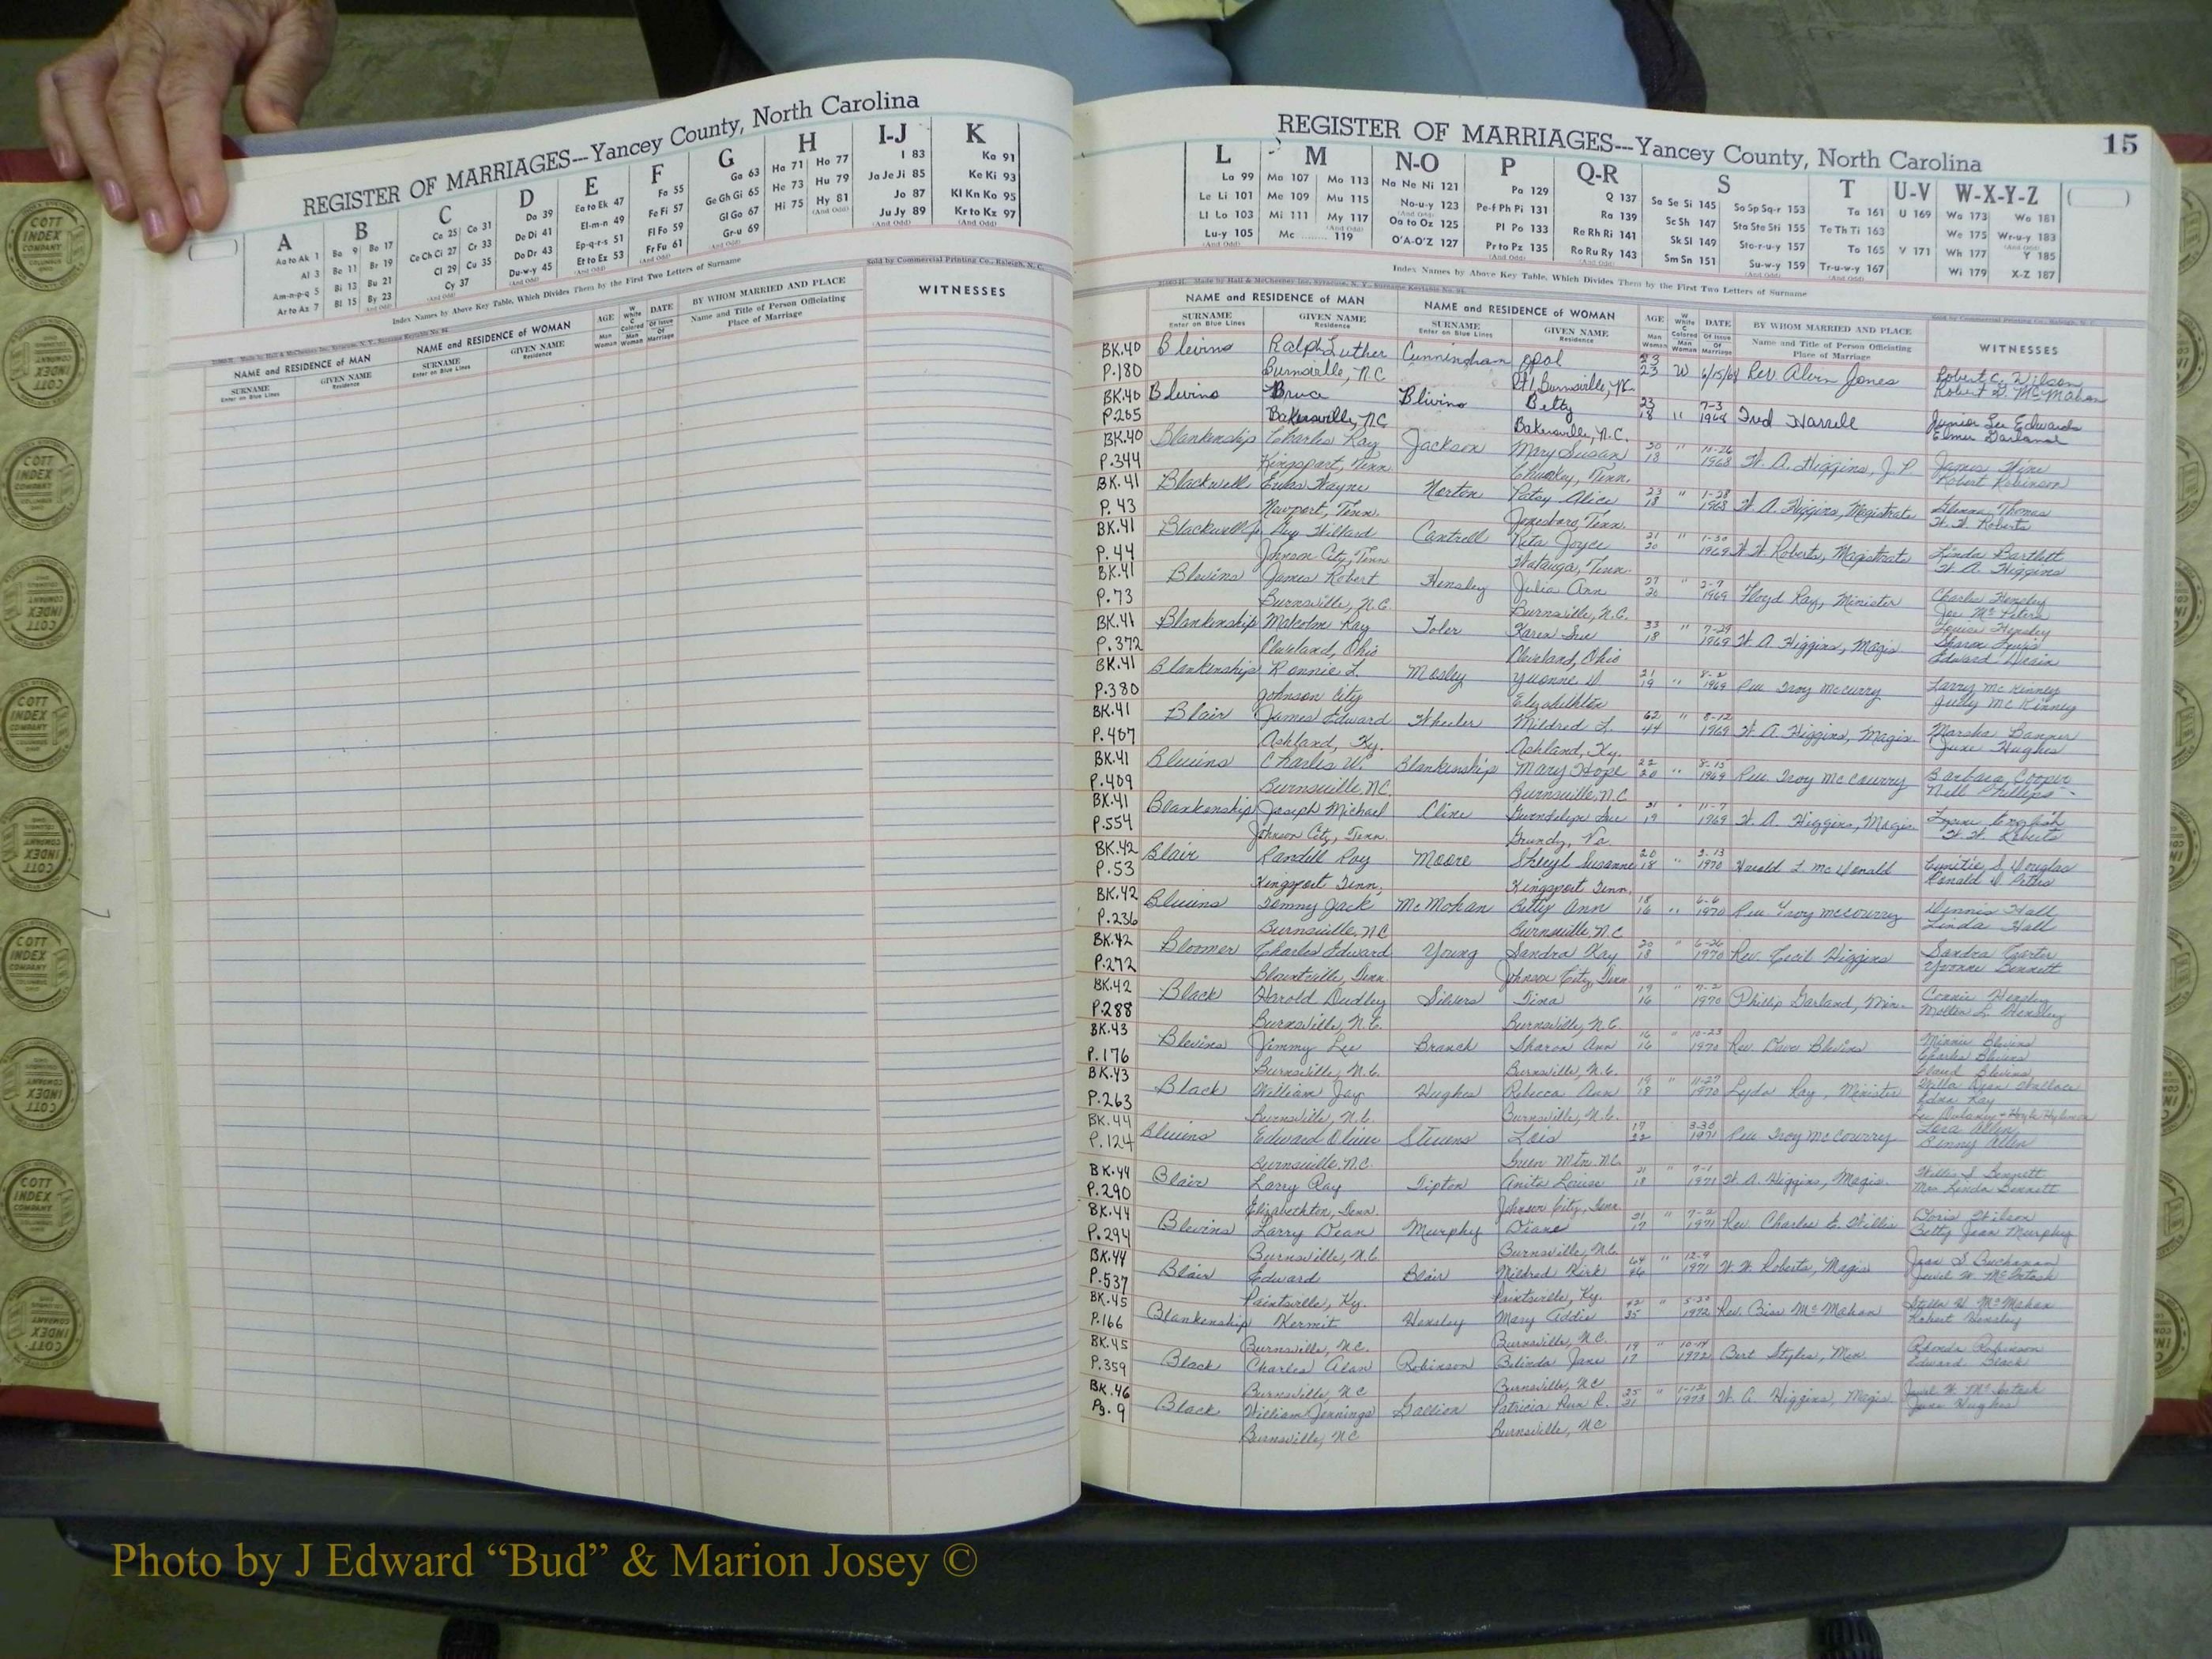 REGISTER OF MARRIAGES---Yancey County, North Carolina
A B C D E F G H I-J K
Aa to Ak 1 Ba 9 Bo 17 Ca 25 Co 31 Da 39 Ea to Ek 47 Fa 55 Ga 63 Ha 71 Ho 77 I 83 Ka 91
Al 3 Be 11 Br 19 Ce Ch Ci 27 Cr 33 De Di 41 El-m-n 49 Fe Fi 57 Ge Gh Gi 65 He 73 Hu 79 Ja Je Ji 85 Ke Ki 93
Am-n-p-q 5 Bi 13 Bu 21 Cl 29 Cu 35 Do Dr 43 Ep-q-r-s 51 Fl Fo 59 Gl Go 67 Hi 75 Hy 81 Jo 87 Kl Kn Ko 95
Ar to Az 7 Bl 15 By 23 Cy 37 Du-w-y 45 Et to Ez 53 Fr Fu 61 Gr-u 69 Ju Jy 89 Kr to Kz 97
Index Names by Above Key Table, Which Divides Them by the First Two Letters of Surname
Sold by Commercial Printing Co., Raleigh, N. C.
NAME and RESIDENCE of MAN
NAME and RESIDENCE of WOMAN
AGE
DATE
BY WHOM MARRIED AND PLACE
WITNESSES
SURNAME
Enter on Blue Lines
GIVEN NAME
Residence
SURNAME
Enter on Blue Lines
GIVEN NAME
Residence
Name and Title of Person Officiating
Place of Marriage
REGISTER OF MARRIAGES---Yancey County, North Carolina
15
L M N-O P Q-R S T U-V W-X-Y-Z
La 99 Ma 107 Mo 113 Na Ne Ni 121 Pa 129 Q 137 Sa Se Si 145 So Sp Sq-r 153 Ta 161 U 169 Wa 173 Wo 181
Le Li 101 Me 109 Mu 115 No-u-y 123 Pe-f Ph Pi 131 Ra 139 Sc Sh 147 Sta Ste Sti 155 Te Th Ti 163 We 175 Wr-u-y 183
Ll Lo 103 Mi 111 My 117 Oa to Oz 125 Pl Po 133 Re Rh Ri 141 Sk Sl 149 Sto-r-u-y 157 To 165 V 171 Wh 177 Y 185
Lu-y 105 Mc 119 O'A-O'Z 127 Pr to Pz 135 Ro Ru Ry 143 Sm Sn 151 Su-w-y 159 Tr-u-w-y 167 Wi 179 X-Z 187
Index Names by Above Key Table, Which Divides Them by the First Two Letters of Surname
NAME and RESIDENCE of MAN
NAME and RESIDENCE of WOMAN
AGE
DATE
BY WHOM MARRIED AND PLACE
WITNESSES
SURNAME
Enter on Blue Lines
GIVEN NAME
Residence
SURNAME
Enter on Blue Lines
GIVEN NAME
Residence
Name and Title of Person Officiating
Place of Marriage
BK.40 Blevins Ralph Luther Cunningham Opal 23 Robert C. Wilson
P.180 Burnsville, NC Rt 1, Burnsville, NC 23 W Rev Alvin Jones Robert D. McMahan
BK.40 Blevins Bruce Blivins Betty 23 7-3 Junior Lee Edwards
P.265 Bakersville, NC Bakersville, N.C. 18 " 1968 Fred Harrell Elmer Garland
BK.40 Blankenship Charles Ray Jackson Mary Susan 20 " 11-26 James Hine
P.344 Kingsport, Tenn Chuckey, Tenn. 18 1968 W. A. Higgins, J P Robert Robinson
BK.41 Blackwell Wayne Norton Patsy Alice 23 " 1-28 Glenna Thomas
P.43 Newport, Tenn. Jonesboro, Tenn. 18 W. A. Higgins, Magistrate W. W. Roberts
BK.41 Blackwell Jr Guy Willard Cantrell Rita Joyce 21 " 1-30 Linda Bartlett
P.44 Johnson City, Tenn Watauga, Tenn. 20 1969 W. W. Roberts, Magistrate W. A. Higgins
BK.41 Blevins James Robert Hensley Julia Ann 27 " 2-7 Charlie Hensley
P.73 Burnsville, N.C. Burnsville, N.C. 20 1969 Floyd Ray, Minister Joe McPeters
Louise Hensley
BK.41 Blankenship Malcolm Ray Toler Karen Sue 33 " 7-29 Sharon Lewis
P.372 Cleveland, Ohio Cleveland, Ohio 18 1969 W. A. Higgins, Magis
BK.41 Blankenship Ronnie L. Mosley Yvonne D. 21 " 8-2 Larry McKinney
P.380 Johnson City Elizabethton 19 1969 Rev Troy McCurry Judy McKinney
BK.41 Blair James Edward Wheeler Mildred L. 62 " 8-12 Marsha Banner
P.407 Ashland, Ky. Ashland, Ky. 44 1969 W. A. Higgins, Magis. June Hughes
BK.41 Blevins Charles W. Blankenship Mary Hope 22 " 8-15 Barbara Cooper
P.409 Burnsville, NC. Burnsville, N.C 20 1969 Rev. Troy McCourry Nell Phillips
BK.41 Blankenship Joseph Michael Cline Gwendolyn Sue 21 " 11-7
P.554 Johnson City, Tenn. Grundy, Va. 19 1969 W. A. Higgins, Magis. W. W. Roberts
BK.42 Blair Randell Ray Moore Sheryl Susanne 20 " 2-13
P.53 Kingsport Tenn. Kingsport Tenn. 18 1970 Harold L McDonald
BK.42 Blevins Tommy Jack McMahan Betty Ann 18 " 6-6 Dennis Hall
P.236 Burnsville, NC Burnsville, NC 16 1970 Rev. Troy McCourry Linda Hall
BK.42 Bloomer Charles Edward Young Sandra Kay 20 " 6-26 Sandra Carter
P.272 Blountville, Tenn. Johnson City, Tenn 18 1970 Rev. Cecil Higgins Yvonne Bennett
BK.42 Black Harold Dudley Silvers Tina 19 " 7-2 Connie Hensley
P.288 Burnsville, N.C. Burnsville, N.C. 16 1970 Phillip Garland, Min. Hensley
BK.43 Blevins Jimmy Lee Branch Sharon Ann 16 " 10-23 Minnie Blevins
P.176 Burnsville, N.C. Burnsville, N.C. 16 1970 Rev. Dave Blevins Charles Blevins
Claud Blevins
BK.43 Black William Jay Hughes Rebecca Ann 19 " 11-27 Willa Dean Wallace
P.263 Burnsville, N.C. Burnsville, N.C. 18 1970 Lyda Ray, Minister Edna Ray
BK.44 Blevins Edward Oliver Stevens Lois 17 3-30 Allen
P.124 Burnsville, N.C. Green Mtn. N.C. 22 1971 Rev Troy McCourry Benny Allen
BK.44 Blair Larry Ray Tipton Anita Louise 21 " 7-1 Willis S. Bennett
P.290 Elizabethton, Tenn. Johnson City, Tenn 18 1971 W. A. Higgins, Magis. Mrs Linda Bennett
BK.44 Blevins Larry Dean Murphy Diane 21 " 7-2 Doris Wilson
P.294 Burnsville, N.C. Burnsville, N.C. 17 1971 Rev. Charles E. Willis Betty Jean Murphy
BK.44 Blair Edward Blair Mildred Kirk 64 " 12-9 Jean S Buchanan
P.537 Paintsville, Ky. Paintsville, Ky. 46 1971 W. W. Roberts, Magis Jewel W. McIntosh
BK.45 Blankenship Kermit Hensley Mary Addie 42 " Stella H McMahan
P.166 Burnsville, N.C. Burnsville, N.C. 35 1972 Rev. McMahan Robert Hensley
BK.45 Black Charles Alan Robinson Belinda Jane 19 " Rhonda Robinson
P.359 Burnsville, NC Burnsville, NC 17 1972 Bert Styles, Min Edward Black
BK.46 Black William Jennings Gallion Patricia Ann R. 25 " 1-12 Jewel W. McIntosh
Pg.9 Burnsville, NC Burnsville, NC 21 1973 W. A. Higgins, Magis. June Hughes
COTT INDEX COMPANY
Photo by J Edward “Bud” & Marion Josey ©